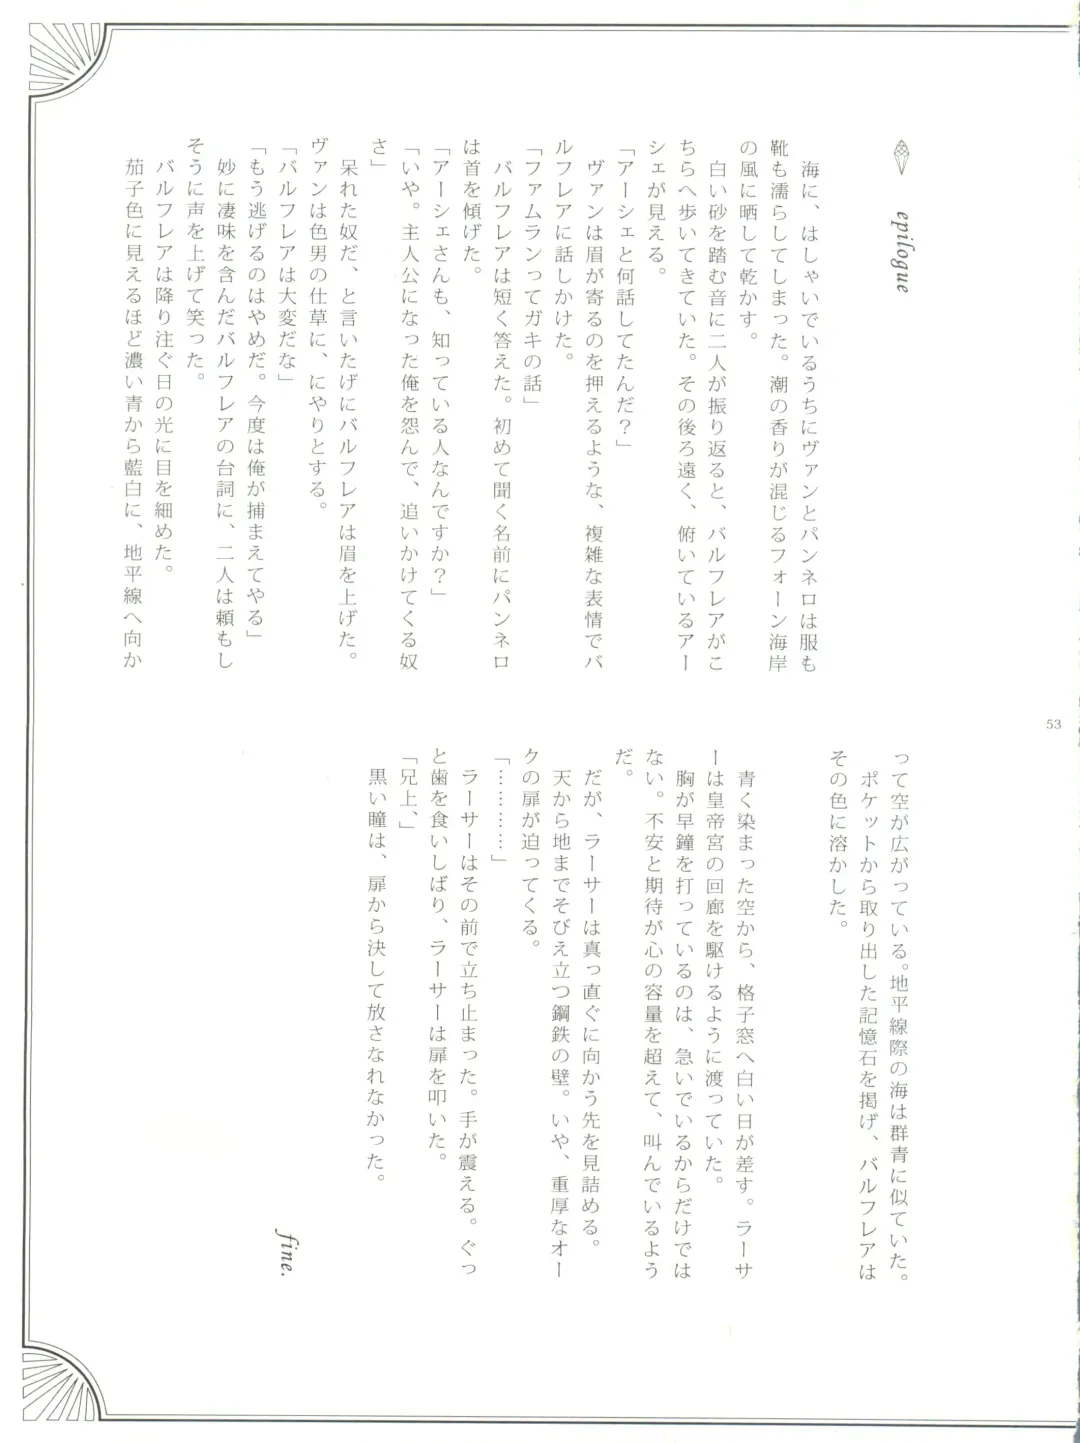 epilogue
海に、はしゃいでいるうちにヴァンとパンネロは服も
靴も濡らしてしまった。潮の香りが混じるフォーン海岸
の風に晒して乾かす。
白い砂を踏む音に二人が振り返ると、バルフレアがこ
ちらへ歩いてきていた。その後ろ遠く、俯いているアー
シェが見える。
「アーシェと何話してたんだ?」
ヴァンは眉が寄るのを押えるような、複雑な表情でバ
ルフレアに話しかけた。
「ファムランってガキの話」
バルフレアは短く答えた。初めて聞く名前にパンネロ
は首を傾げた。
「アーシェさんも、知っている人なんですか?」
「いや。主人公になった俺を怨んで、追いかけてくる奴
さ」
呆れた奴だ、と言いたげにバルフレアは眉を上げた。
ヴァンは色男の仕草に、にやりとする。
「バルフレアは大変だな」
「もう逃げるのはやめだ。今度は俺が捕まえてやる」
妙に凄味を含んだバルフレアの台詞に、二人は頼もし
そうに声を上げて笑った。
バルフレアは降り注ぐ日の光に目を細めた。
茄子色に見えるほど濃い青から藍白に、地平線へ向か
って空が広がっている。地平線際の海は群青に似ていた。
ポケットから取り出した記憶石を掲げ、バルフレアは
その色に溶かした。
青く染まった空から、格子窓へ白い日が差す。ラーサ
ーは皇帝宮の回廊を駆けるように渡っていた。
胸が早鐘を打っているのは、急いでいるからだけでは
ない。不安と期待が心の容量を超えて、叫んでいるよう
だ。
だが、ラーサーは真っ直ぐに向かう先を見詰める。
天から地までそびえ立つ鋼鉄の壁。いや、重厚なオー
クの扉が迫ってくる。
「…………」
ラーサーはその前で立ち止まった。手が震える。ぐっ
と歯を食いしばり、ラーサーは扉を叩いた。
「兄上、」
黒い瞳は、扉から決して放さなれなかった。
fine.
53